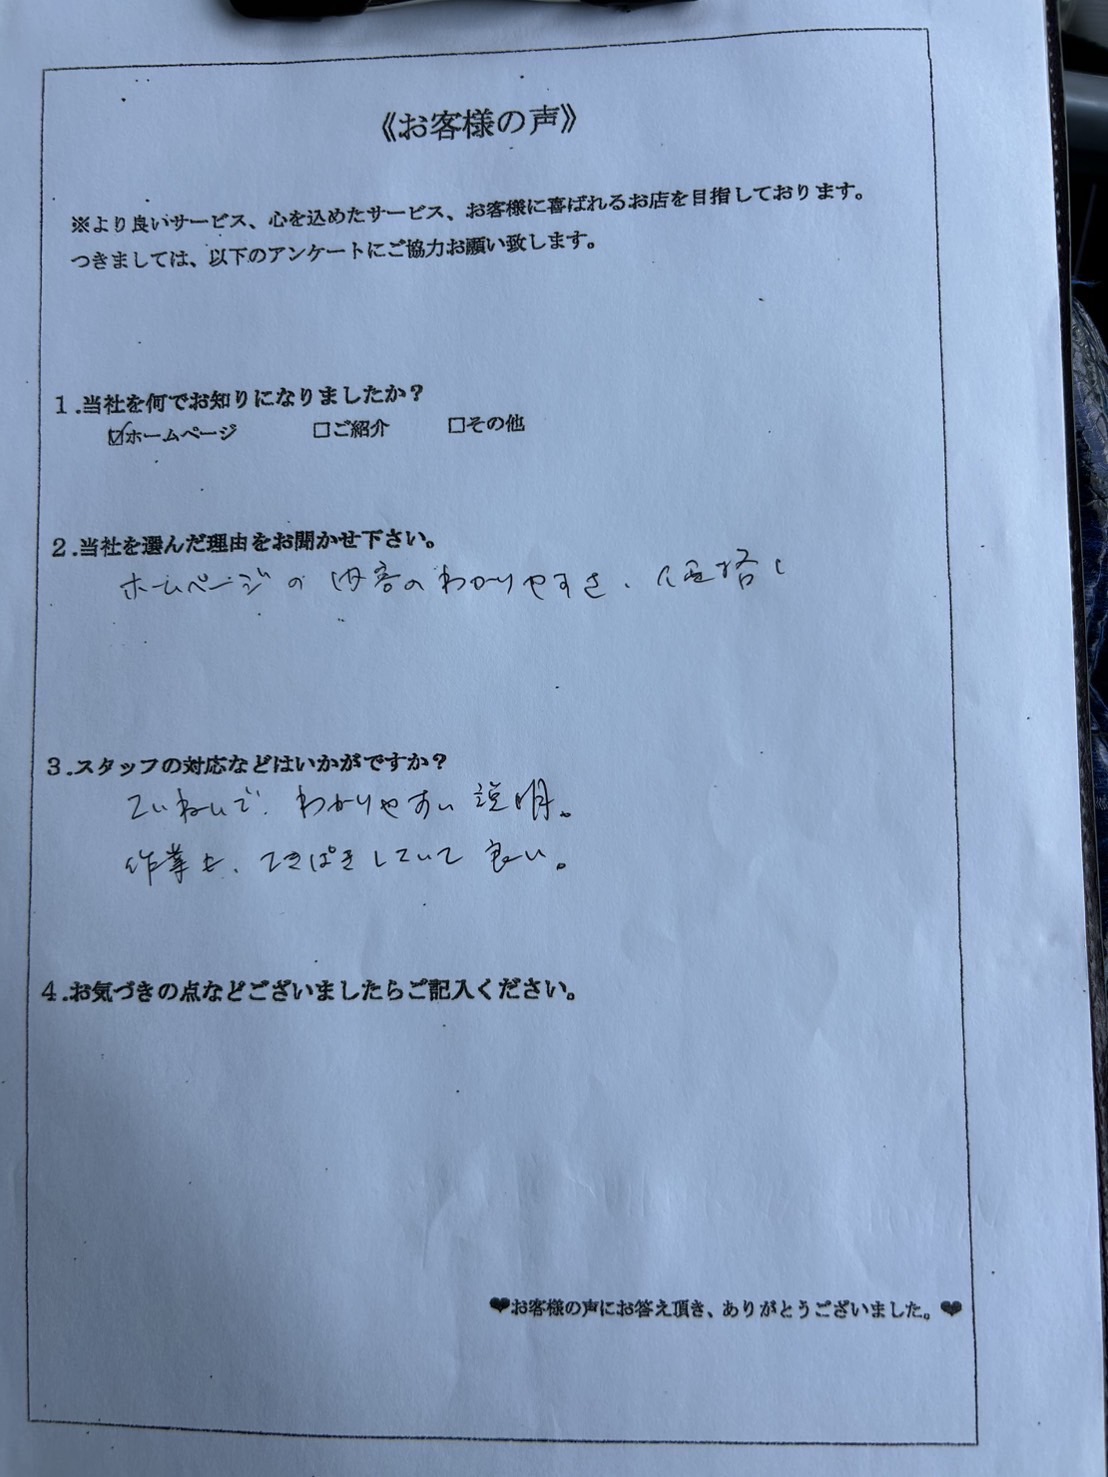 《お客様の声》
※より良いサービス、心を込めたサービス、お客様に喜ばれるお店を目指しております。
つきましては、以下のアンケートにご協力お願い致します。
1.当社を何でお知りになりましたか？
☑ホームページ　□ご紹介　□その他
2.当社を選んだ理由をお聞かせ下さい。
ホームページの内容のわかりやすさ、
3.スタッフの対応などはいかがですか？
ていねいで、わかりやすい説明。
作業も、てきぱきしていて良い。
4.お気づきの点などございましたらご記入ください。
❤お客様の声にお答え頂き、ありがとうございました。❤